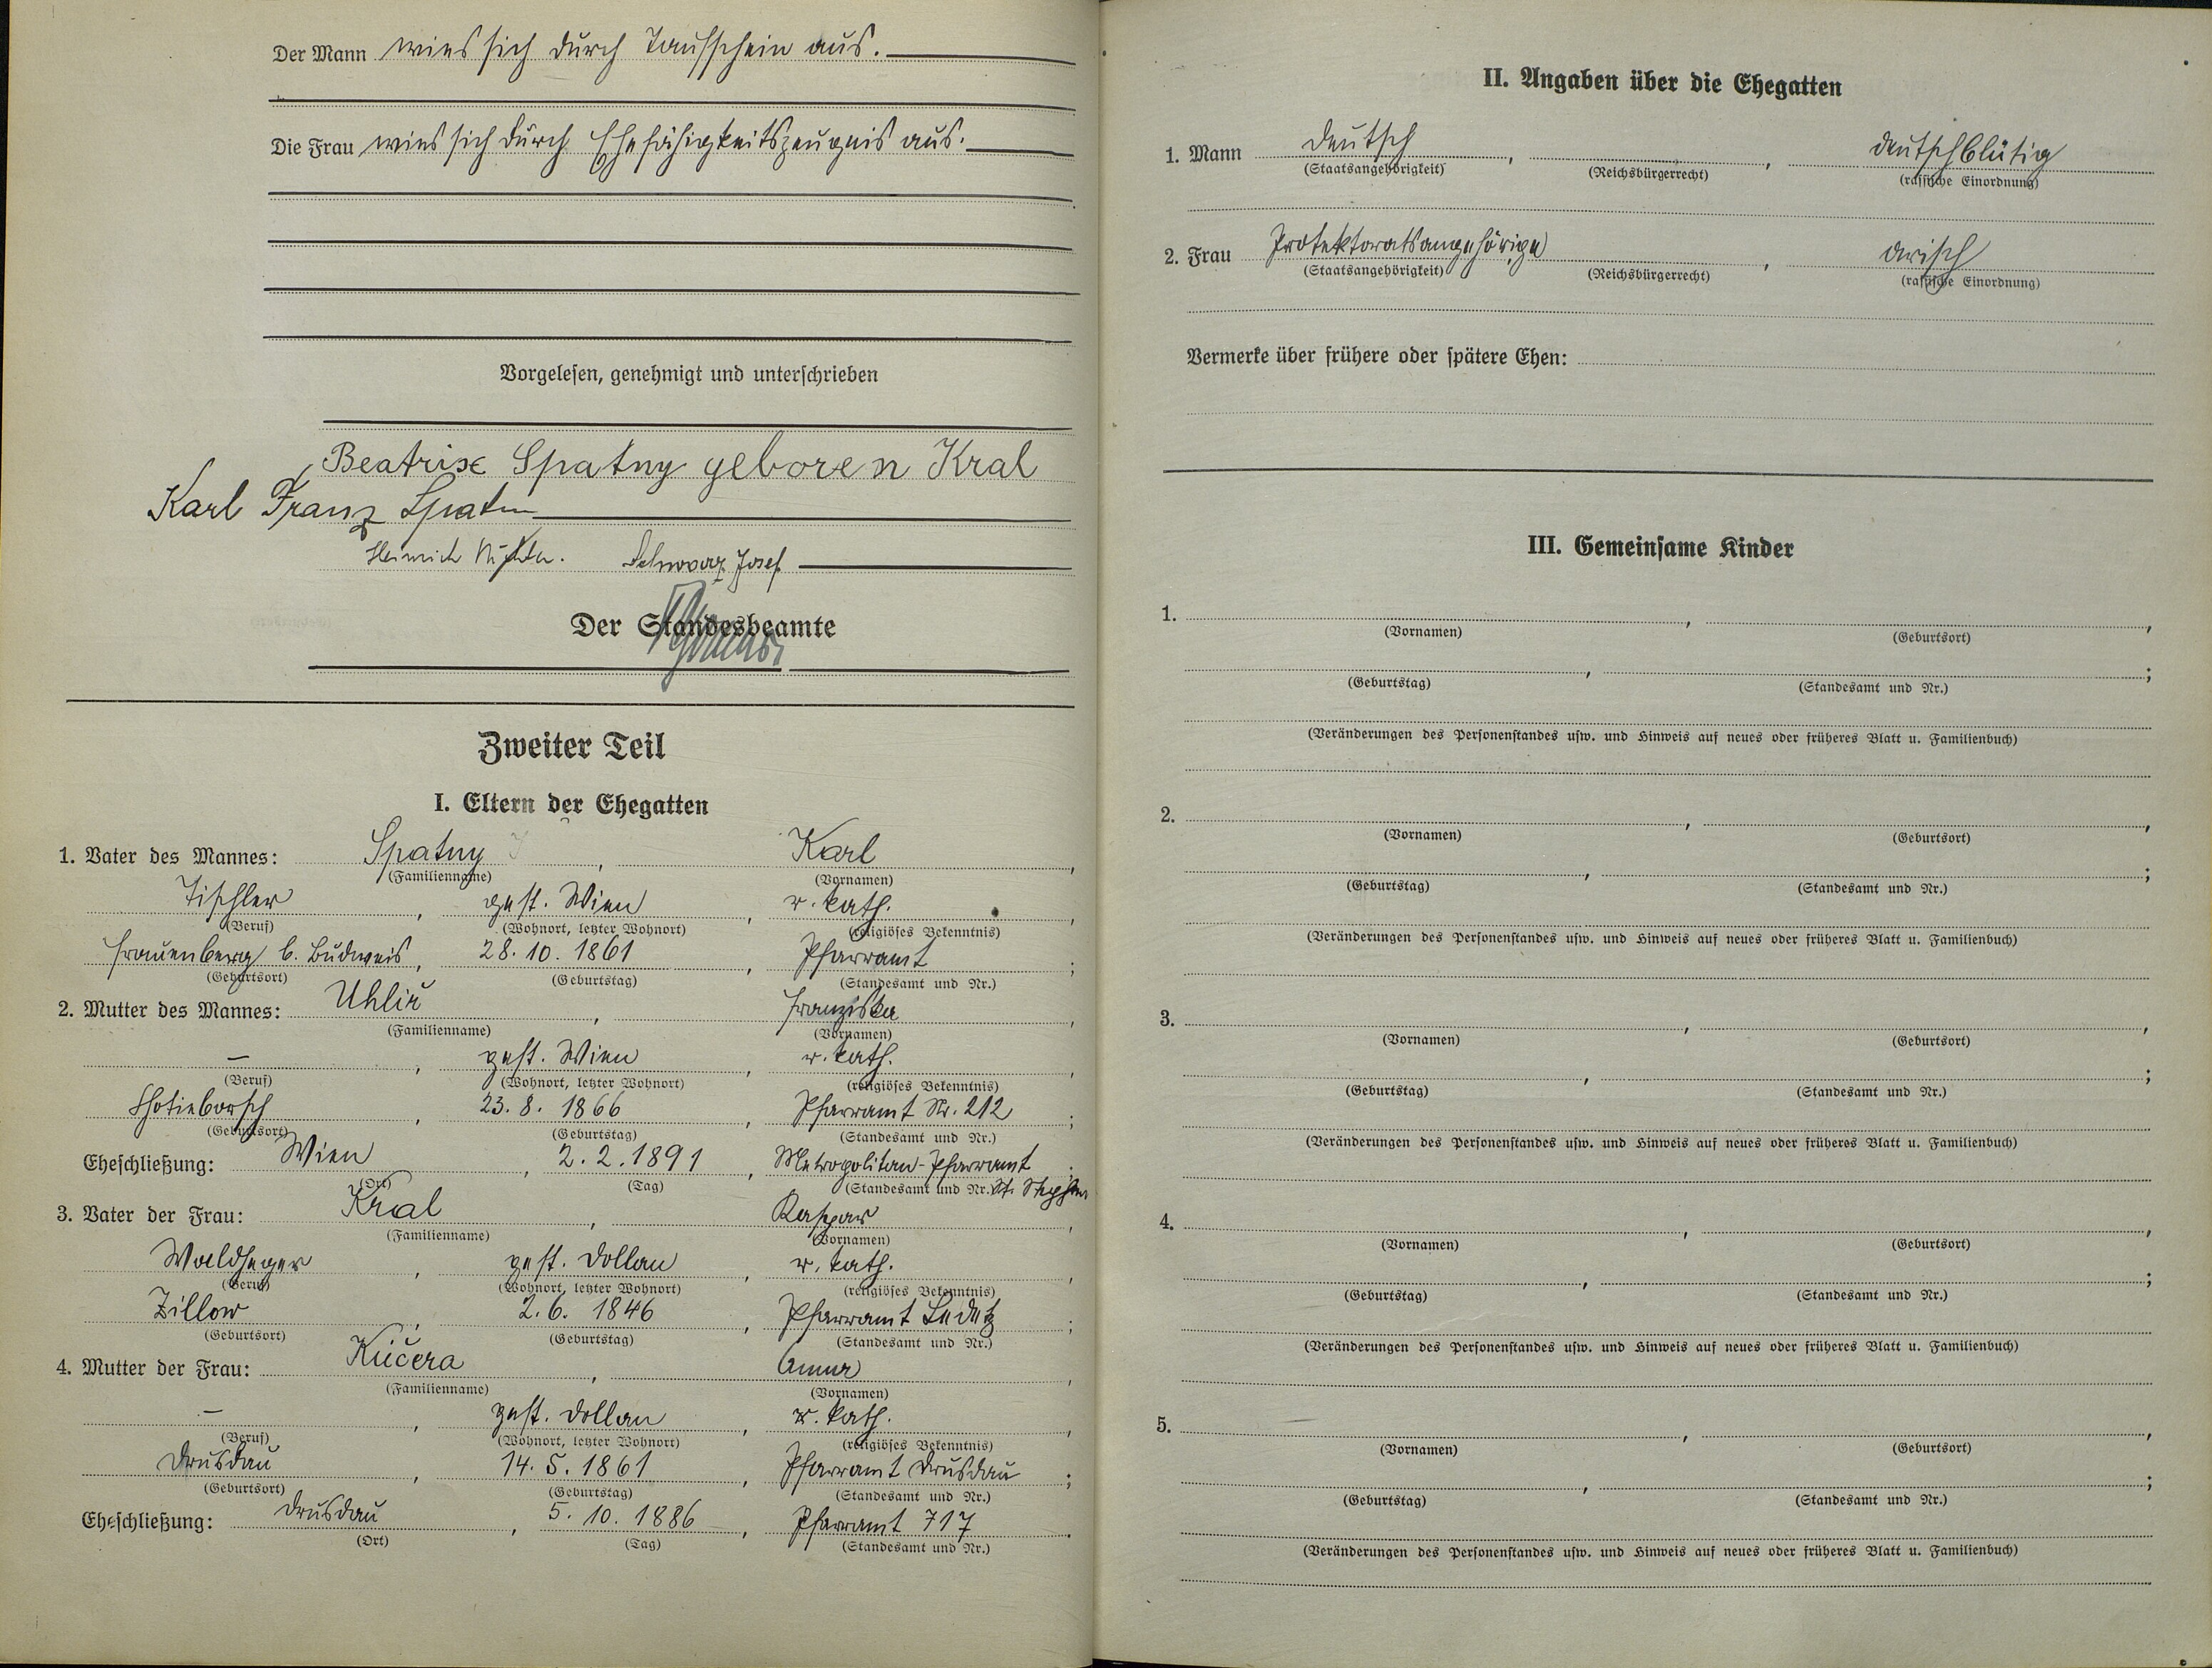 Der Mann wies sich durch Taufschein aus.
Die Frau wies sich durch Ehefähigkeitszeugnis aus.
Vorgelesen, genehmigt und unterschrieben
Beatrix Spatny geboren Kral
Karl Franz Spatny
Heinrich Schwarz Josef
Der Standesbeamte
Zweiter Teil
I. Eltern der Ehegatten
1. Vater des Mannes: Spatny, Karl,
(Familienname) (Vornamen)
Tischler, gest. Wien, r. kath.,
(Beruf) (Wohnort, letzter Wohnort) (religiöses Bekenntnis)
Frauenberg b. Budweis, 28.10.1861, Pfarramt;
(Geburtsort) (Geburtstag) (Standesamt und Nr.)
2. Mutter des Mannes: Uhliř, Franziska,
(Familienname) (Vornamen)
—, gest. Wien, r. kath.,
(Beruf) (Wohnort, letzter Wohnort) (religiöses Bekenntnis)
Chotieborsch, 23.8.1866, Pfarramt Nr. 212;
(Geburtsort) (Geburtstag) (Standesamt und Nr.)
Eheschließung: Wien, 2.2.1891, Metropolitan-Pfarramt
(Ort) (Tag) (Standesamt und Nr.) St. Stephan
3. Vater der Frau: Kral, Kaspar,
(Familienname) (Vornamen)
Waldheger, gest. Dollan, r. kath.,
(Beruf) (Wohnort, letzter Wohnort) (religiöses Bekenntnis)
Zillow, 2.6.1846, Pfarramt Ledetz;
(Geburtsort) (Geburtstag) (Standesamt und Nr.)
4. Mutter der Frau: Kučera, Anna,
(Familienname) (Vornamen)
—, gest. Dollan, r. kath.,
(Beruf) (Wohnort, letzter Wohnort) (religiöses Bekenntnis)
Drusdau, 14.5.1861, Pfarramt Drusdau;
(Geburtsort) (Geburtstag) (Standesamt und Nr.)
Eheschließung: Drusdau, 5.10.1886, Pfarramt 717.
(Ort) (Tag) (Standesamt und Nr.)
II. Angaben über die Ehegatten
1. Mann deutsch, , deutschblütig
(Staatsangehörigkeit) (Reichsbürgerrecht) (rassische Einordnung)
2. Frau Protektoratsangehörige, arisch
(Staatsangehörigkeit) (Reichsbürgerrecht) (rassische Einordnung)
Vermerke über frühere oder spätere Ehen:
III. Gemeinsame Kinder
1. , ,
(Vornamen) (Geburtsort)
, ;
(Geburtstag) (Standesamt und Nr.)
(Veränderungen des Personenstandes usw. und Hinweis auf neues oder früheres Blatt u. Familienbuch)
2. , ,
(Vornamen) (Geburtsort)
, ;
(Geburtstag) (Standesamt und Nr.)
(Veränderungen des Personenstandes usw. und Hinweis auf neues oder früheres Blatt u. Familienbuch)
3. , ,
(Vornamen) (Geburtsort)
, ;
(Geburtstag) (Standesamt und Nr.)
(Veränderungen des Personenstandes usw. und Hinweis auf neues oder früheres Blatt u. Familienbuch)
4. , ,
(Vornamen) (Geburtsort)
, ;
(Geburtstag) (Standesamt und Nr.)
(Veränderungen des Personenstandes usw. und Hinweis auf neues oder früheres Blatt u. Familienbuch)
5. , ,
(Vornamen) (Geburtsort)
, ;
(Geburtstag) (Standesamt und Nr.)
(Veränderungen des Personenstandes usw. und Hinweis auf neues oder früheres Blatt u. Familienbuch)